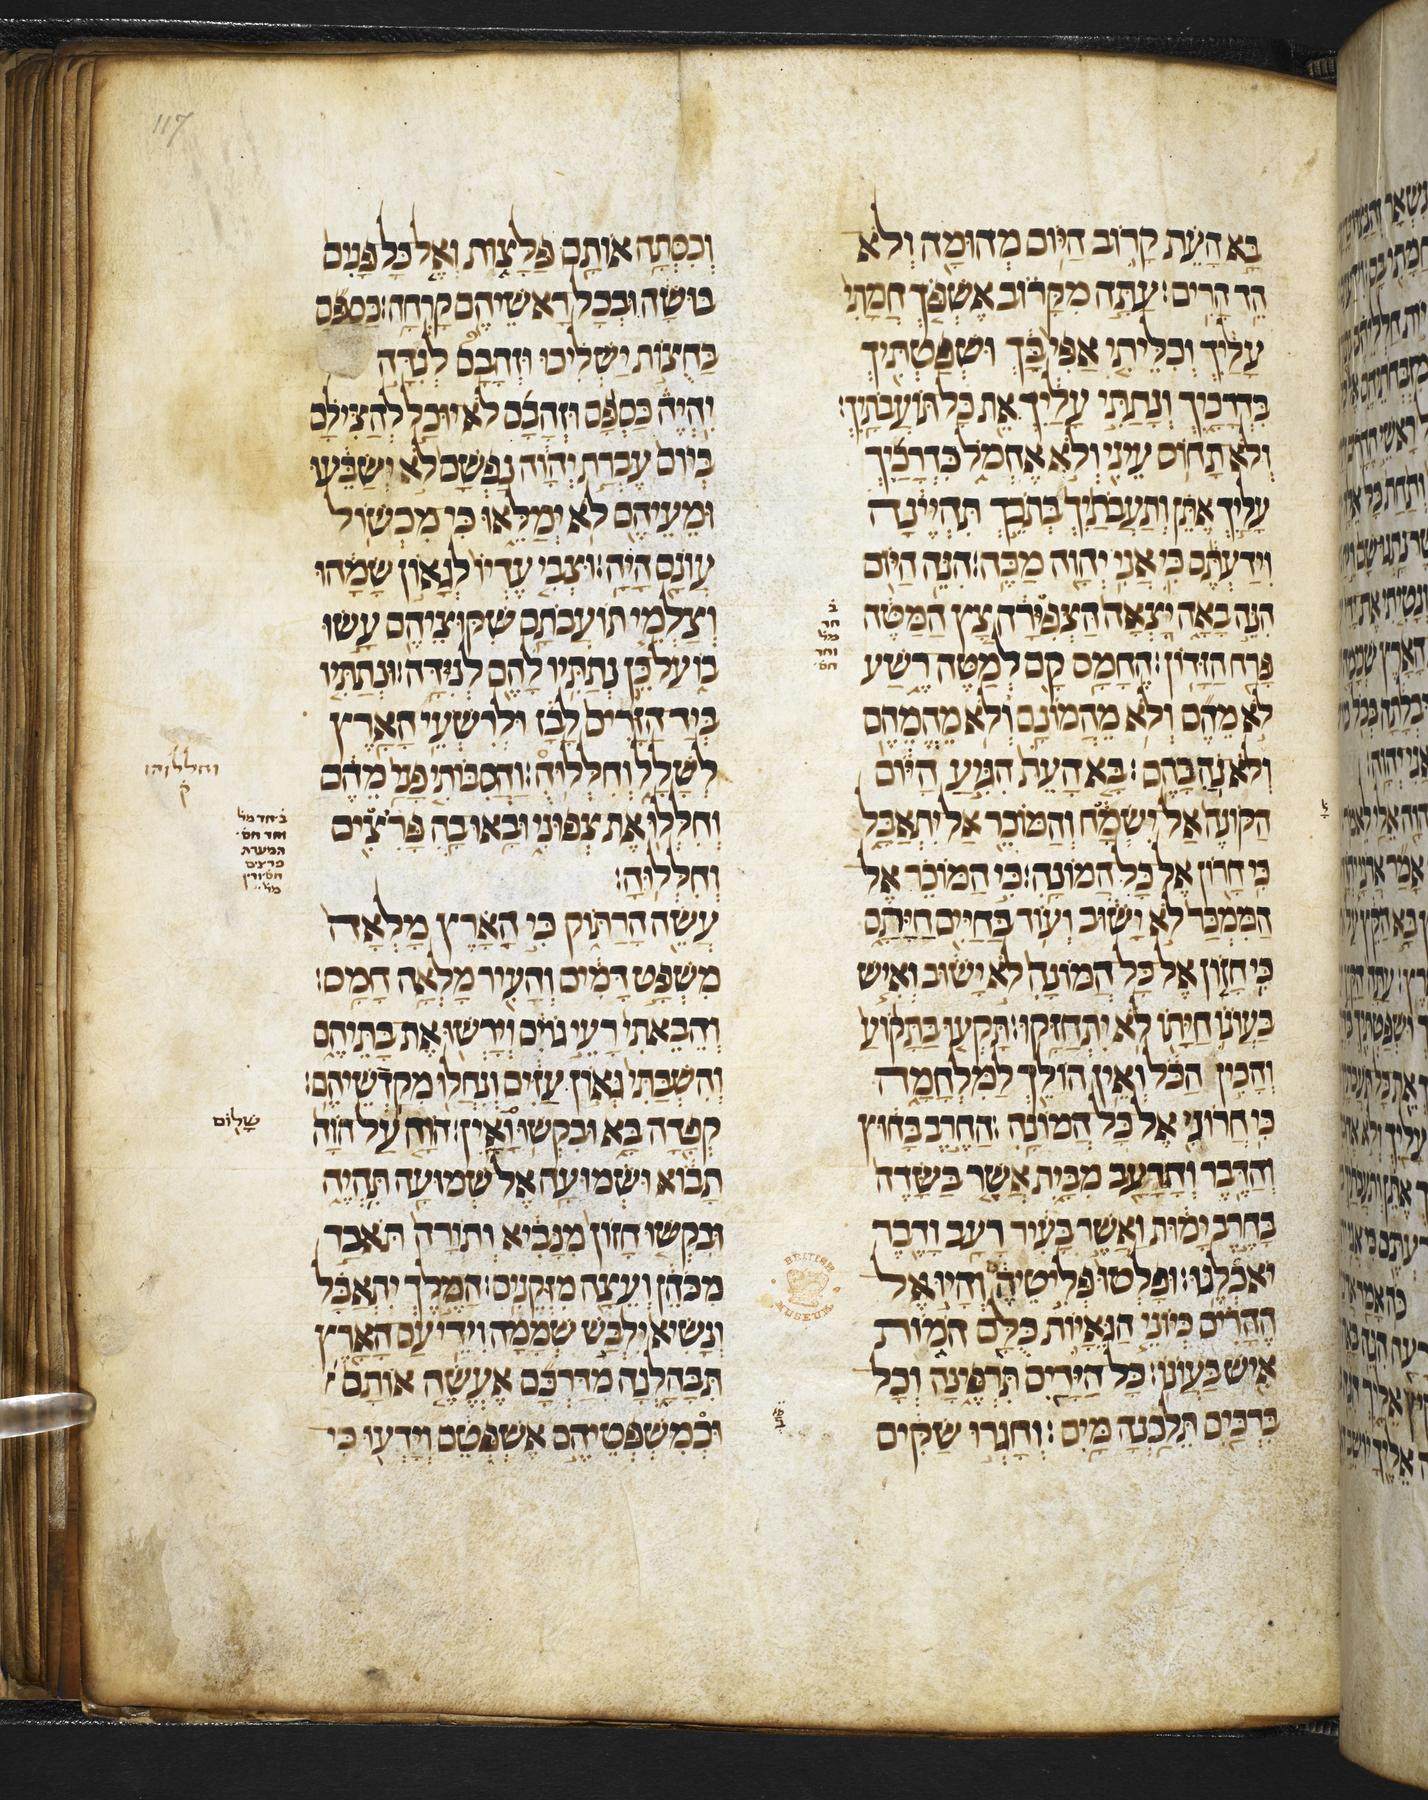 117
בא העת קרוב היום מהומה ולא
הד הרים: עתה מקרוב אשפך חמתי
עליך וכליתי אפי בך ושפטתיך
כדרכיך ונתתי עליך את כל תועבתיך:
ולא תחוס עיני ולא אחמל כדרכיך
עליך אתן ותעבתיך בתכך תהיינה
וידעתם כי אני יהוה מכה: הנה היום
הנה באה יצאה הצפירה צץ המטה
פרח הזדון: החמס קם למטה רשע
לא מהם ולא מהמונם ולא מהמהם
ולא נה בהם: בא העת הגיע היום
הקונה אל ישמח והמוכר אל יתאבל
כי חרון אל כל המונה: כי המוכר אל
הממכר לא ישוב ועוד בחיים חיתם
כי חזון אל כל המונה לא ישוב ואיש
בעונו חיתו לא יתחזקו: תקעו בתקוע
והכין הכל ואין הולך למלחמה
כי חרוני אל כל המונה: החרב בחוץ
והדבר והרעב מבית אשר בשדה
בחרב ימות ואשר בעיר רעב ודבר
יאכלנו: ופלטו פליטיה והיו אל
ההרים כיוני הגאיות כלם המות
איש בעונו: כל הידים תרפינה וכל
ברכים תלכנה מים: וחגרו שקים
וכסתה אותם פלצות ואל כל פנים
בושה ובכל ראשיהם קרחה: כספם
בחצות ישליכו וזהבם לנדה
יהיה כספם וזהבם לא יוכל להצילם
ביום עברת יהוה נפשם לא ישבעו
ומעיהם לא ימלאו כי מכשול
עונם היה: וצבי עדיו לגאון שמהו
וצלמי תועבתם שקוציהם עשו
בו על כן נתתיו להם לנידה: ונתתיו
ביד הזרים לבז ולרשעי הארץ
לשלל וחללוה: והסבותי פני מהם
וחללו את צפוני ובאו בה פריצים
וחללוה:
עשה הרתוק כי הארץ מלאה
משפט דמים והעיר מלאה חמס:
והבאתי רעי גוים וירשו את בתיהם
והשבתי גאון עזים ונחלו מקדשיהם:
קפדה בא ובקשו ואין: הוה על הוה
תבוא ושמועה אל שמועה תהיה
ובקשו חזון מנביא ותורה תאבד
מכהן ועצה מזקנים: המלך יתאבל
ונשיא ילבש שממה וידי עם הארץ
תבהלנה מדרכם אעשה אותם
ובמשפטיהם אשפטם וידעו כי
וחללוהו
ק
שלום
BRITISH
MUSEUM